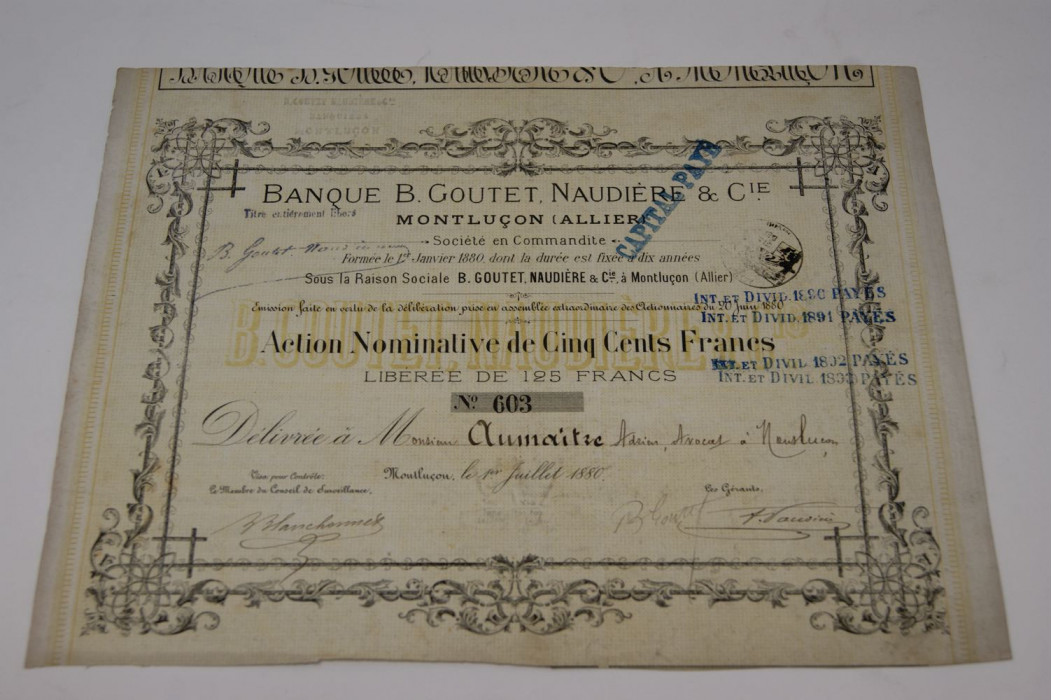 BANQUE B. GOUTET, NAUDIÈRE & C^IE, A MONTLUÇON
B. GOUTET NAUDIÈRE & C^ie
BANQUIERS
MONTLUÇON
BANQUE B. GOUTET, NAUDIÈRE & C^IE
CAPITAL PAYÉ
Titre entièrement libéré
MONTLUÇON (ALLIER)
B. Goutet Naudière
Société en Commandite
Formée le 1^er Janvier 1880, dont la durée est fixée à dix années
Sous la Raison Sociale B. GOUTET, NAUDIÈRE & C^ie, à Montluçon (Allier)
INT. ET DIVID. 1890 PAYÉS
Emission faite en vertu de la délibération prise en assemblée extraordinaire des Actionnaires du 20 Juin 1880
INT. ET DIVID. 1891 PAYÉS
B. GOUTET, NAUDIÈRE
Action Nominative de Cinq Cents Francs
INT. ET DIVID. 1892 PAYÉS
LIBÉRÉE DE 125 FRANCS
INT. ET DIVID. 1893 PAYÉS
N° 603
Délivrée à Monsieur Aumaître Adrien, Avocat à Montluçon
Visa pour Contrôle:
Montluçon, le 1^er Juillet 1880.
Le Membre du Conseil de Surveillance,
Les Gérants,
B. Goutet
A. Naudière